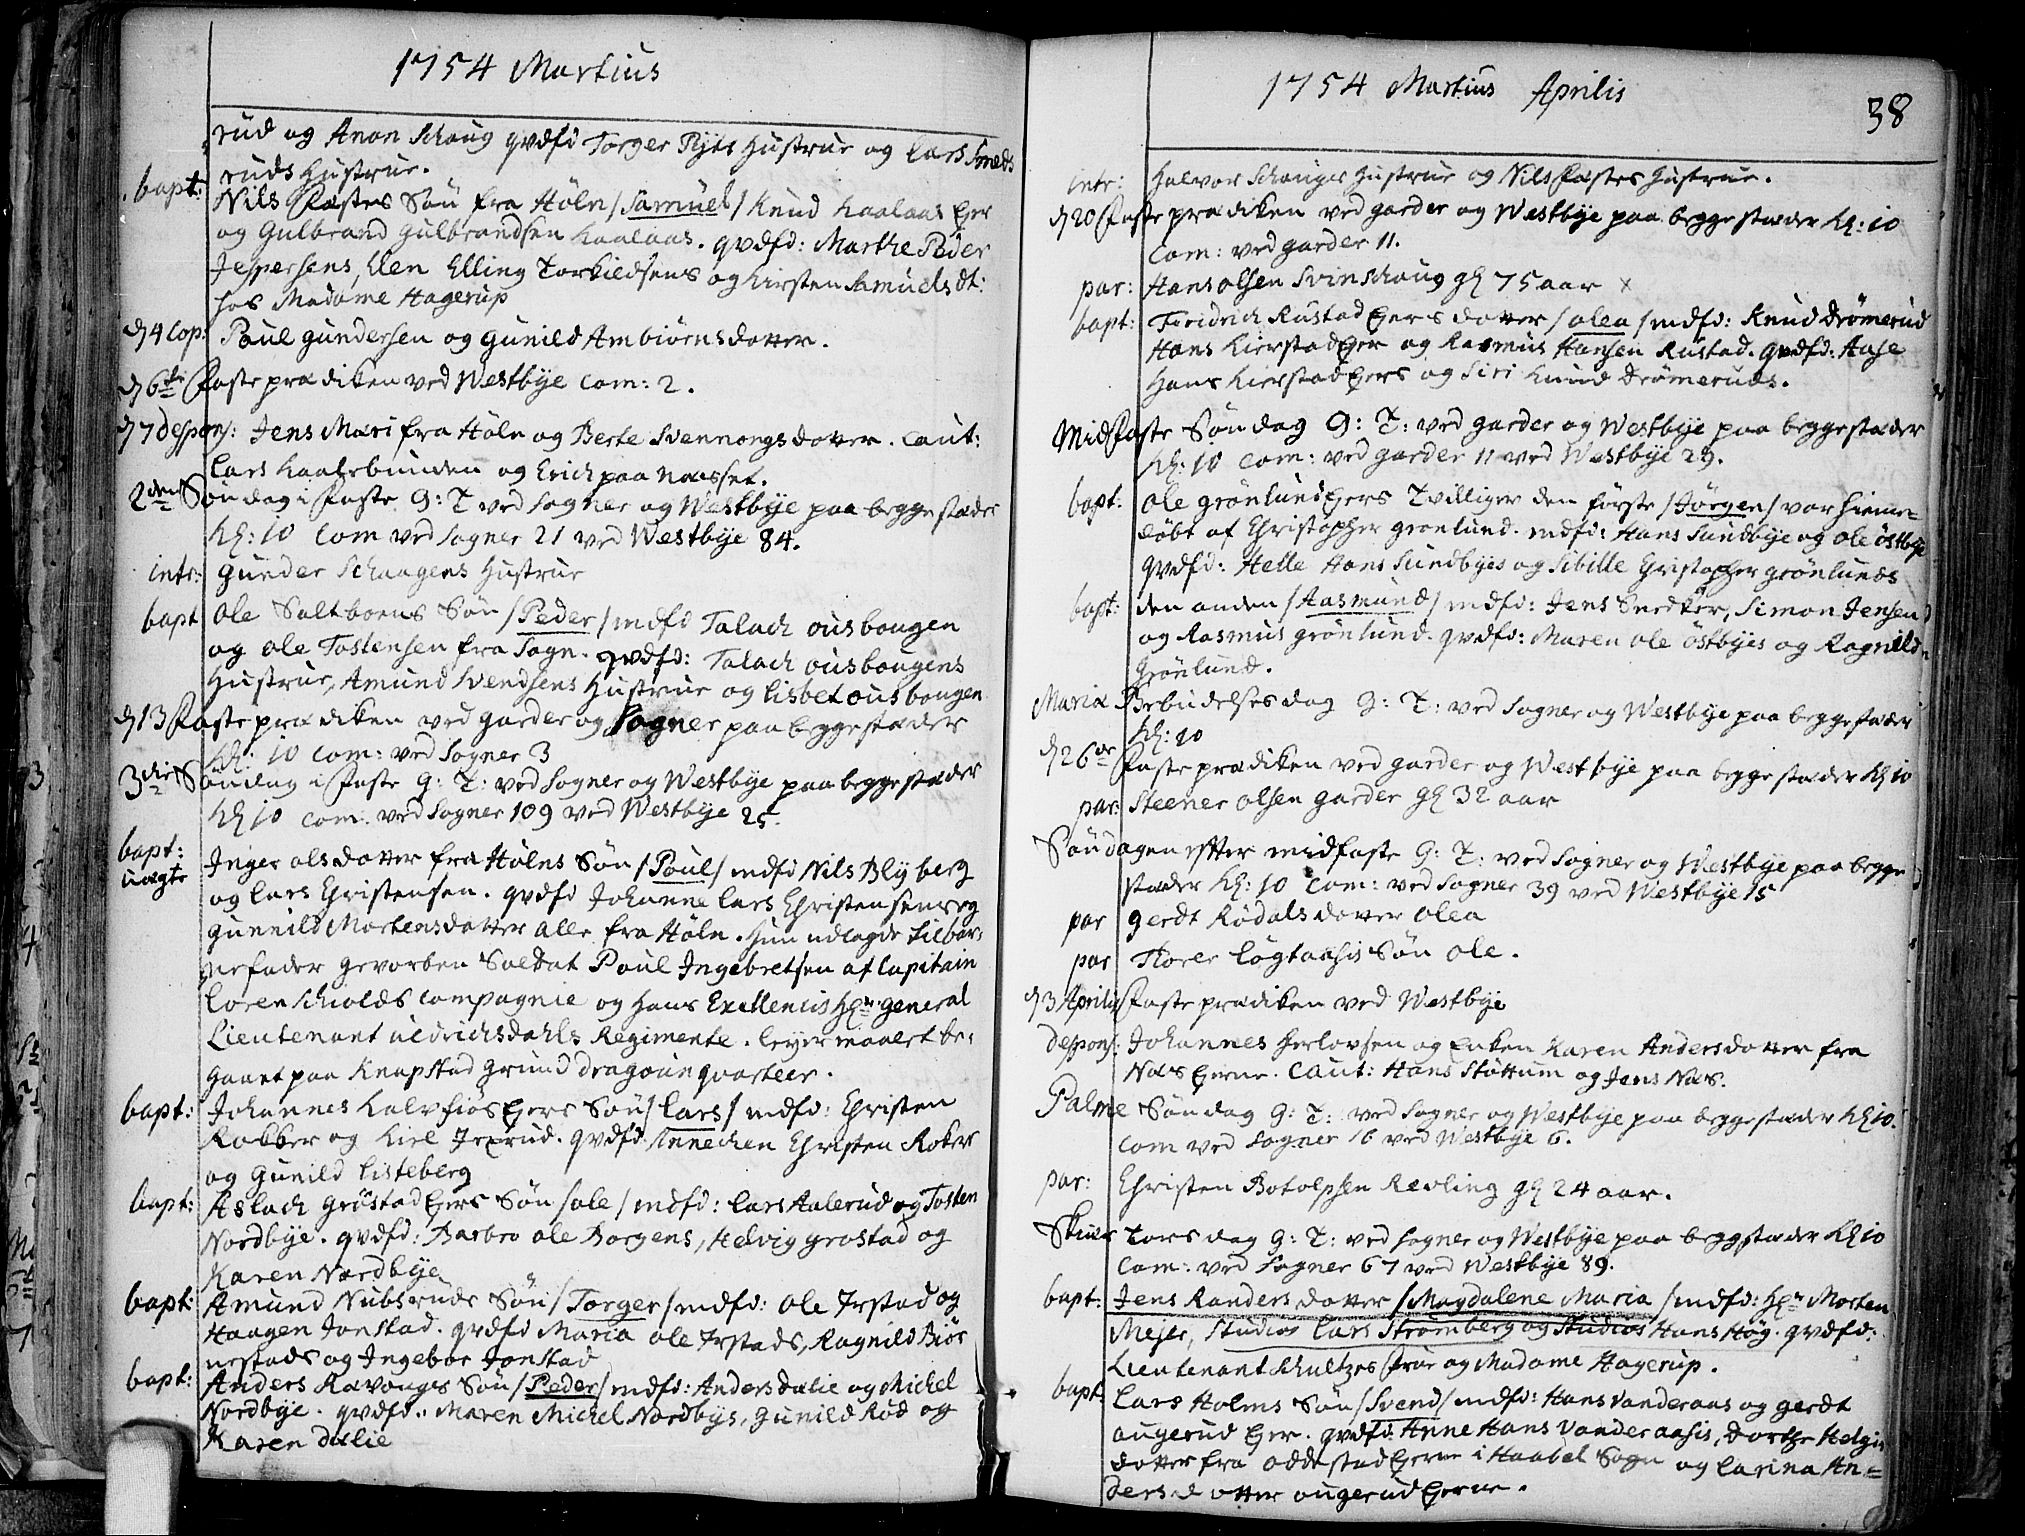 1754 Martius
rud og Anon Schoug qvdfd Torger Ryts Hustrue og Lars Smeds
ruds Hustrue.
bapt: Nils Fæstes Søn fra Høln /Samuel/ Knud Kaalaas Ejer
og Gulbrand Gulbrandsen Kaalaas. qvdfd: Marthe Peder
Jespersens, Elen Elling Torkildsens og Kirsten Samuelsdt:
hos Madame Hagerup
d 4 Cop: Poul Gundersen og Gunild Ambiørnsdotter.
d 6te Faste prædiken ved Westbye Com: 2.
d 7 despons: Jens Mari fra Høln og Berte Svennongsdotter. Caut:
Lars Kaalsbunden og Erich paa Næsset.
2den Søndag i Faste G: T: ved Sogner og Westbye paa begge stæder
Kl: 10 Com ved Sogner 21 ved Westbye 84.
intr: Gunder Schaugens Hustrue
bapt Ole Saltboens Søn /Peder/ mdfd Talach Ousbougen
og Ole Tostensen fra Sogn. qvdfd: Talach Ousbougens
Hustrue, Amund Svendsens Hustrue og Lisbet Ousbougen
d 13 Faste prædiken ved Garder og Sogner paa begge stæder
Kl: 10 Com: ved Sogner 3
3die Søndag i Faste G: T: ved Sogner og Westbye paa begge stæder
Kl 10 Com: ved Sogner 109 ved Westbye 25.
bapt: Inger Olsdotter fra Hølns Søn /Poul/ mdfd Nils Blyberg
uægte og Lars Christensen. qvdfd Johanne Lars Christensens og
Gunnild Mortensdotter alle fra Høln. Hun udlagde til Bar-
nefader gevorben Soldat Poul Ingebretsen af Capitain
Lorenschiolds Compagnie og Hans Excellencis Hr: General
Lieutenant Uldrichsdahls Regimente. Leyermaalet be-
gaaet paa Knapstad Grund dragoun qvarteer.
bapt: Johannes Kalvfiøs Ejers Søn /Lars/ mdfd: Christen
Rokker og Kiel Jexrud. qvdfd: Annechen Christen Rokers
og Gunild Listeberg
bapt: Aslach Grøstad Ejers Søn /Ole/ mdfd: Lars Aalerud og Tosten
Nordbye. qvdfd: Barbro Ole Borgens, Helvig Grøstad og
Karen Nordbye
bapt: Amund Nubsruds Søn /Torger/ mdfd: Ole Irstad og
Haagen Jonstad. qvdfd Maria Ole Irstads, Ragnild Biør
nestads og Ingebor Jonstad
bapt: Anders Ravouges Søn /Peder/ mdfd: Anders Dælie og Michel
Nordbye. qvdfd: Maren Michel Nordbys, Gunild Rød og
Karen Dælie
1754 Martius Aprilis
38
intr: Halvor Schouges Hustrue og Nils Fæstes Hustrue.
d 20 Faste prædiken ved Garder og Westbye paa begge stæder Kl: 10
Com: ved Garder 11.
par: Hans Olsen Svinschoug gl 75 aar ×
bapt: Fridrich Rustad Ejers dotter /Olea/ mdfd: Knud Drømerud
Hans Kierstad Ejer og Rasmus Hansen Rustad. qvdfd: Aase
Hans Kierstad Ejers og Siri Knud Drømeruds.
Midfaste Søndag G: T: ved Garder og Westbye paa begge stæder
Kl: 10 Com: ved Garder 11 ved Westbye 29.
bapt: Ole Grønlund Ejers Tvillinger den første /Jørgen/ var hieme-
døbt af Christopher Grønlund. mdfd: Hans Sundbye og Ole Østbye
qvdfd: Helle Hans Sundbyes og Sibille Christopher Grønlunds
bapt: den anden /Aasmund/ mdfd: Jens Snedker, Simon Jensen
og Rasmus Grønlund. qvdfd: Maren Ole Østbyes og Ragnild
Grønlund.
Mariæ Bebudelses dag G: T: ved Sogner og Westbye paa begge stæder
Kl: 10
d 26de Faste prædiken ved Garder og Westbye paa begge stæder Kl 10
par: Steener Olsen Garder gl 32 aar
Søndagen efter midfaste G: T: ved Sogner og Westbye paa begge
stæder Kl: 10 Com: ved Sogner 39 ved Westbye 15
par Gerdt Rødals dotter Olea
par Torer Løgtaasis Søn Ole.
d 3 Aprilis Faste prædiken ved Westbye
despons: Johannes Herlovsen og Enken Karen Andersdotter fra
Næs Ejerne. Caut: Hans Støttum og Jens Næs.
Palme Søndag G: T: ved Sogner og Westbye paa begge stæder Kl 10.
Com ved Sogner 16 ved Westbye 6.
par: Christen Botolphsen Revling gl 24 aar.
Skiær Torsdag G: T: ved Sogner og Westbye paa begge stæder Kl 10
Com: ved Sogner 67 ved Westbye 89.
bapt: Jens Randers dotter /Magdalene Maria/ mdfd: Hr Morten
Mejer, Studios Lars Strømberg og Studios Hans Høg. qvdfd:
Lieutenant Schultzes Frue og Madame Hagerup.
bapt: Lars Holms Søn /Svend/ mdfd: Hans Vanderaas og Gerdt
Ougerud Ejer. qvdfd: Anne Hans Vanderaasis, Dorthe Helgis
dotter fra Oddestad Ejerne i Haabel Sogn og Carina An-
dersdotter Ougerud Ejerne.